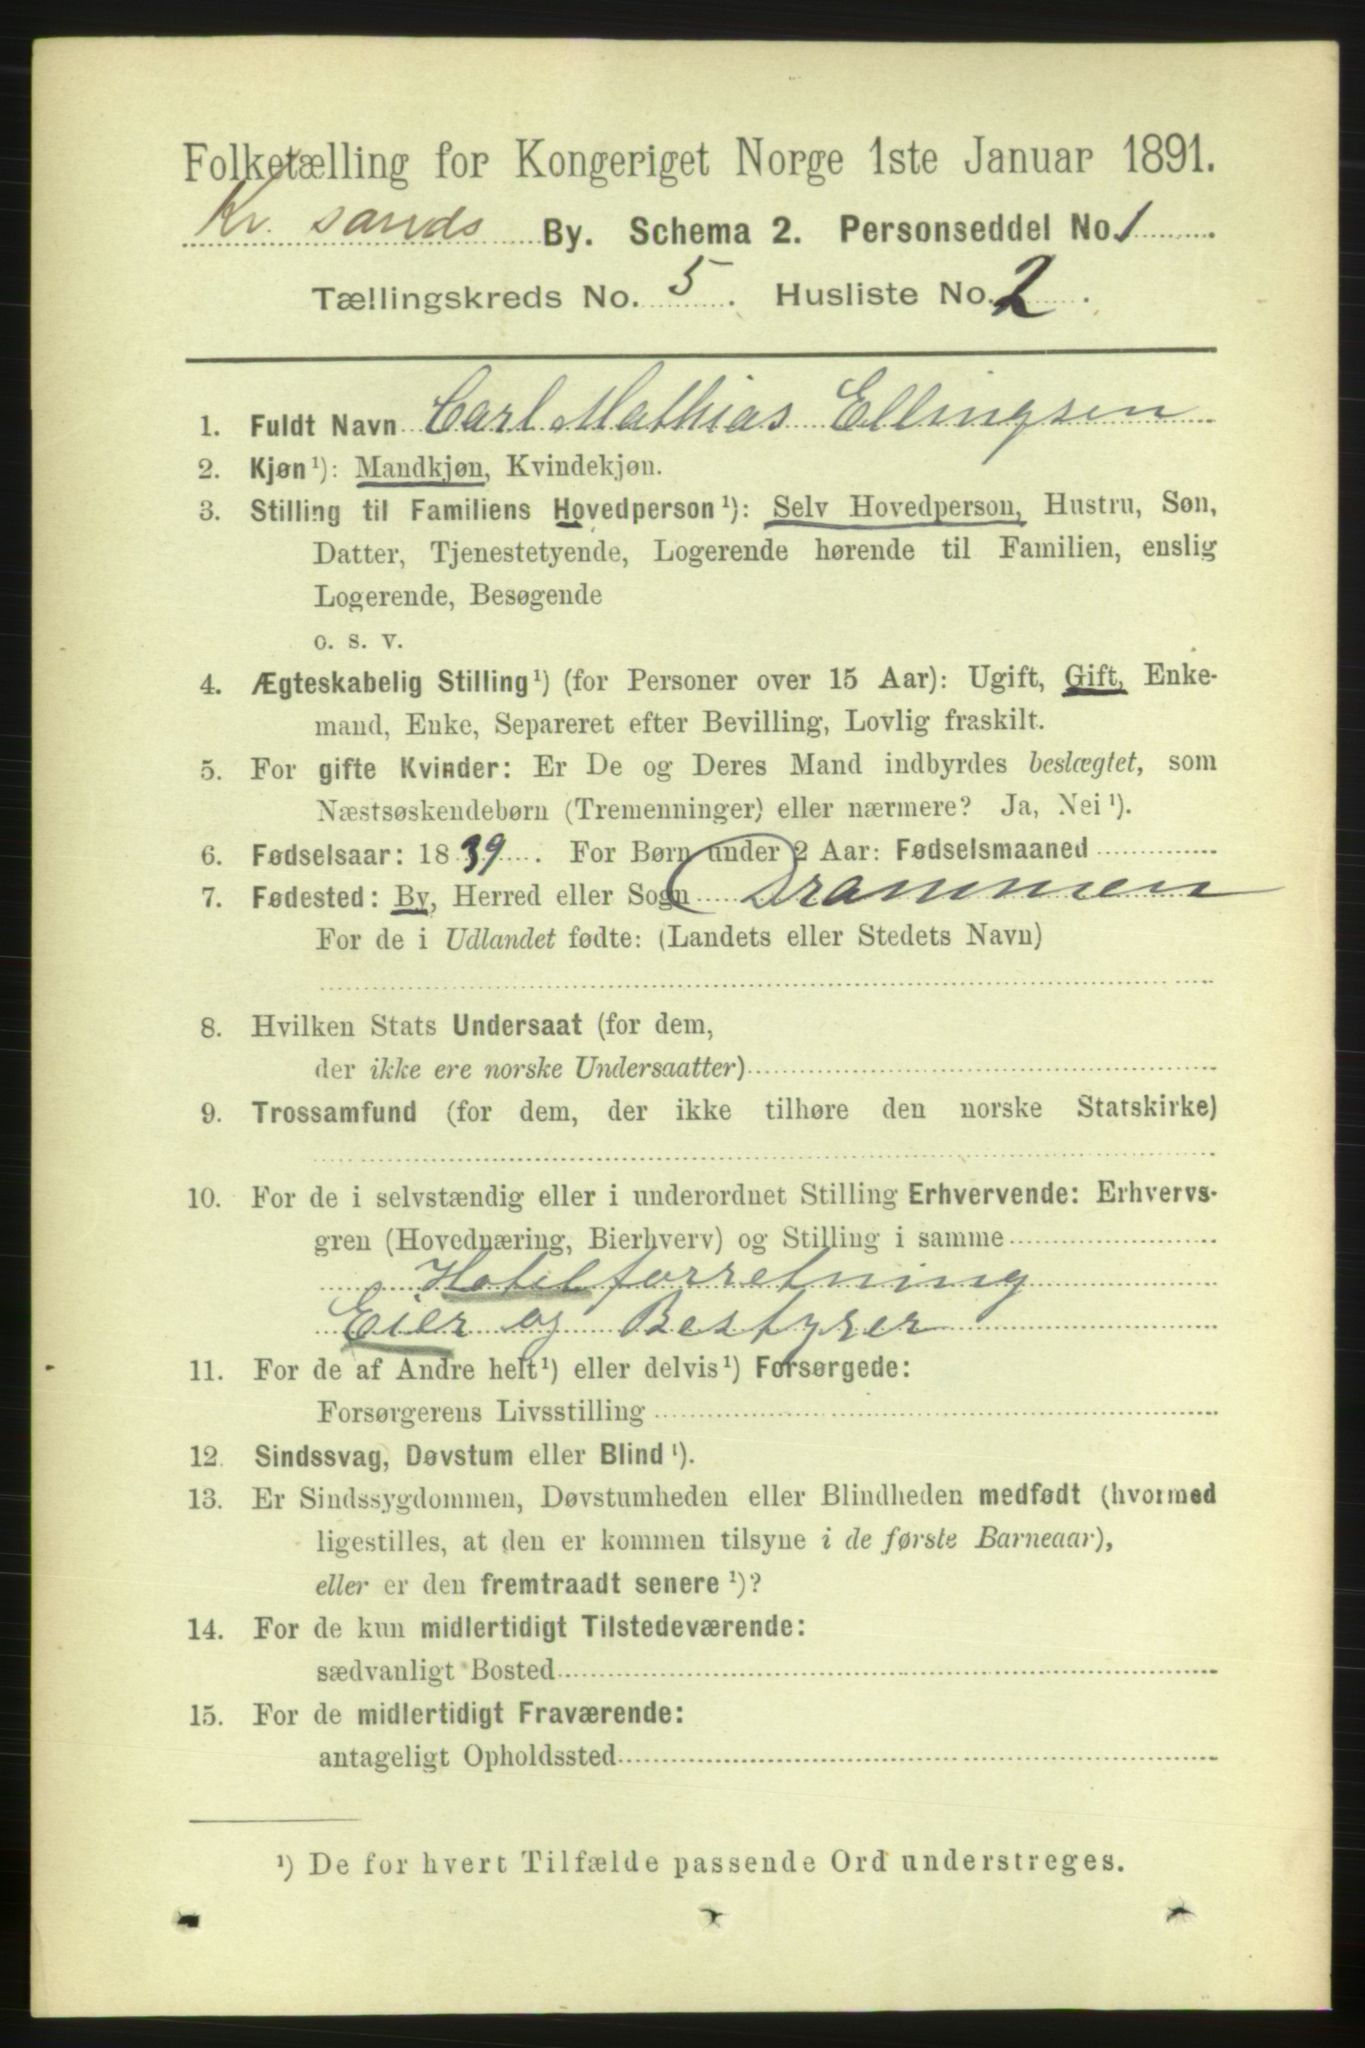 Folketælling for Kongeriget Norge 1ste Januar 1891.
Kr. sands By. Schema 2. Personseddel No. 1
Tællingskreds No. 5. Husliste No. 2.
1. Fuldt Navn Carl Mathias Ellingsen
2. Kjøn¹): Mandkjøn, Kvindekjøn.
3. Stilling til Familiens Hovedperson¹): Selv Hovedperson, Hustru, Søn,
Datter, Tjenestetyende, Logerende hørende til Familien, enslig
Logerende, Besøgende
o. s. v.
4. Ægteskabelig Stilling¹) (for Personer over 15 Aar): Ugift, Gift, Enke-
mand, Enke, Separeret efter Bevilling, Lovlig fraskilt.
5. For gifte Kvinder: Er De og Deres Mand indbyrdes beslægtet, som
Næstsøskendebørn (Tremenninger) eller nærmere? Ja, Nei¹).
6. Fødselsaar: 1839. For Børn under 2 Aar: Fødselsmaaned
7. Fødested: By, Herred eller Sogn Drammen
For de i Udlandet fødte: (Landets eller Stedets Navn)
8. Hvilken Stats Undersaat (for dem,
der ikke ere norske Undersaatter)
9. Trossamfund (for dem, der ikke tilhøre den norske Statskirke)
10. For de i selvstændig eller i underordnet Stilling Erhvervende: Erhvervs-
gren (Hovednæring, Bierhverv) og Stilling i samme
Hotelforretning
Eier og Bestyrer
11. For de af Andre helt¹) eller delvis¹) Forsørgede:
Forsørgerens Livsstilling
12. Sindssvag, Døvstum eller Blind¹).
13. Er Sindssygdommen, Døvstumheden eller Blindheden medfødt (hvormed
ligestilles, at den er kommen tilsyne i de første Barneaar),
eller er den fremtraadt senere¹)?
14. For de kun midlertidigt Tilstedeværende:
sædvanligt Bosted
15. For de midlertidigt Fraværende:
antageligt Opholdssted
¹) De for hvert Tilfælde passende Ord understreges.